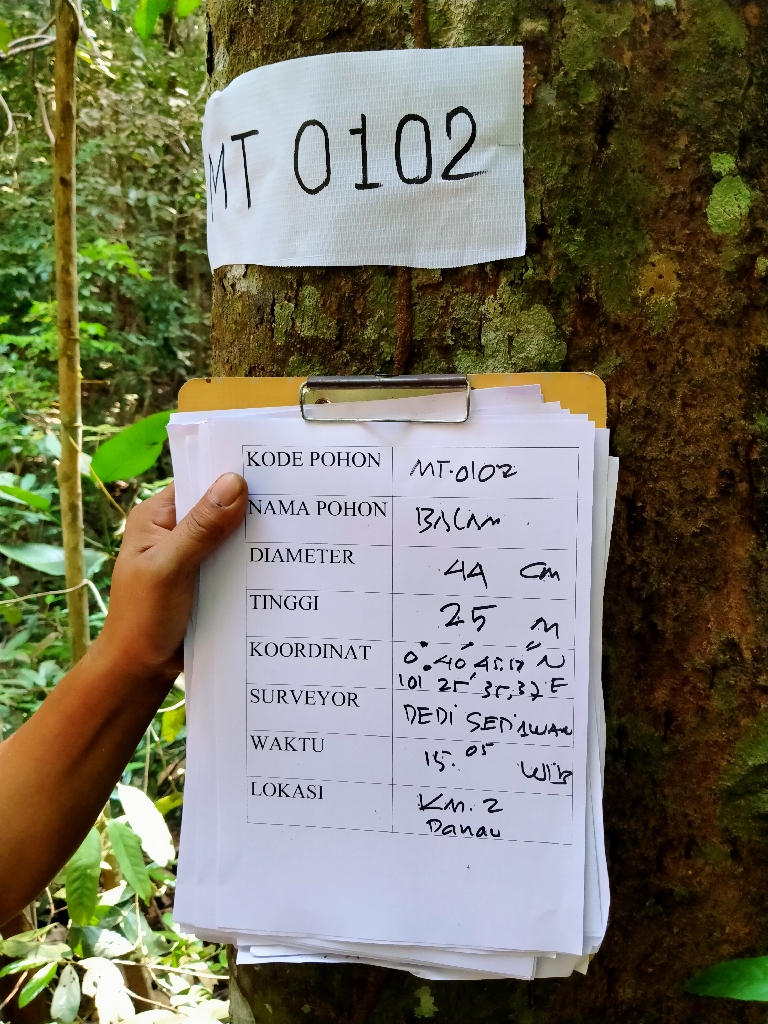 MT 0102
KODE POHON MT-0102
NAMA POHON BALAM
DIAMETER 44 Cm
TINGGI 25 M
KOORDINAT 0° 40' 45.17" N
101 25' 35,32 E
SURVEYOR DEDI SEDIAWAN
WAKTU 15.05 WIB
LOKASI KM. 2
Danau